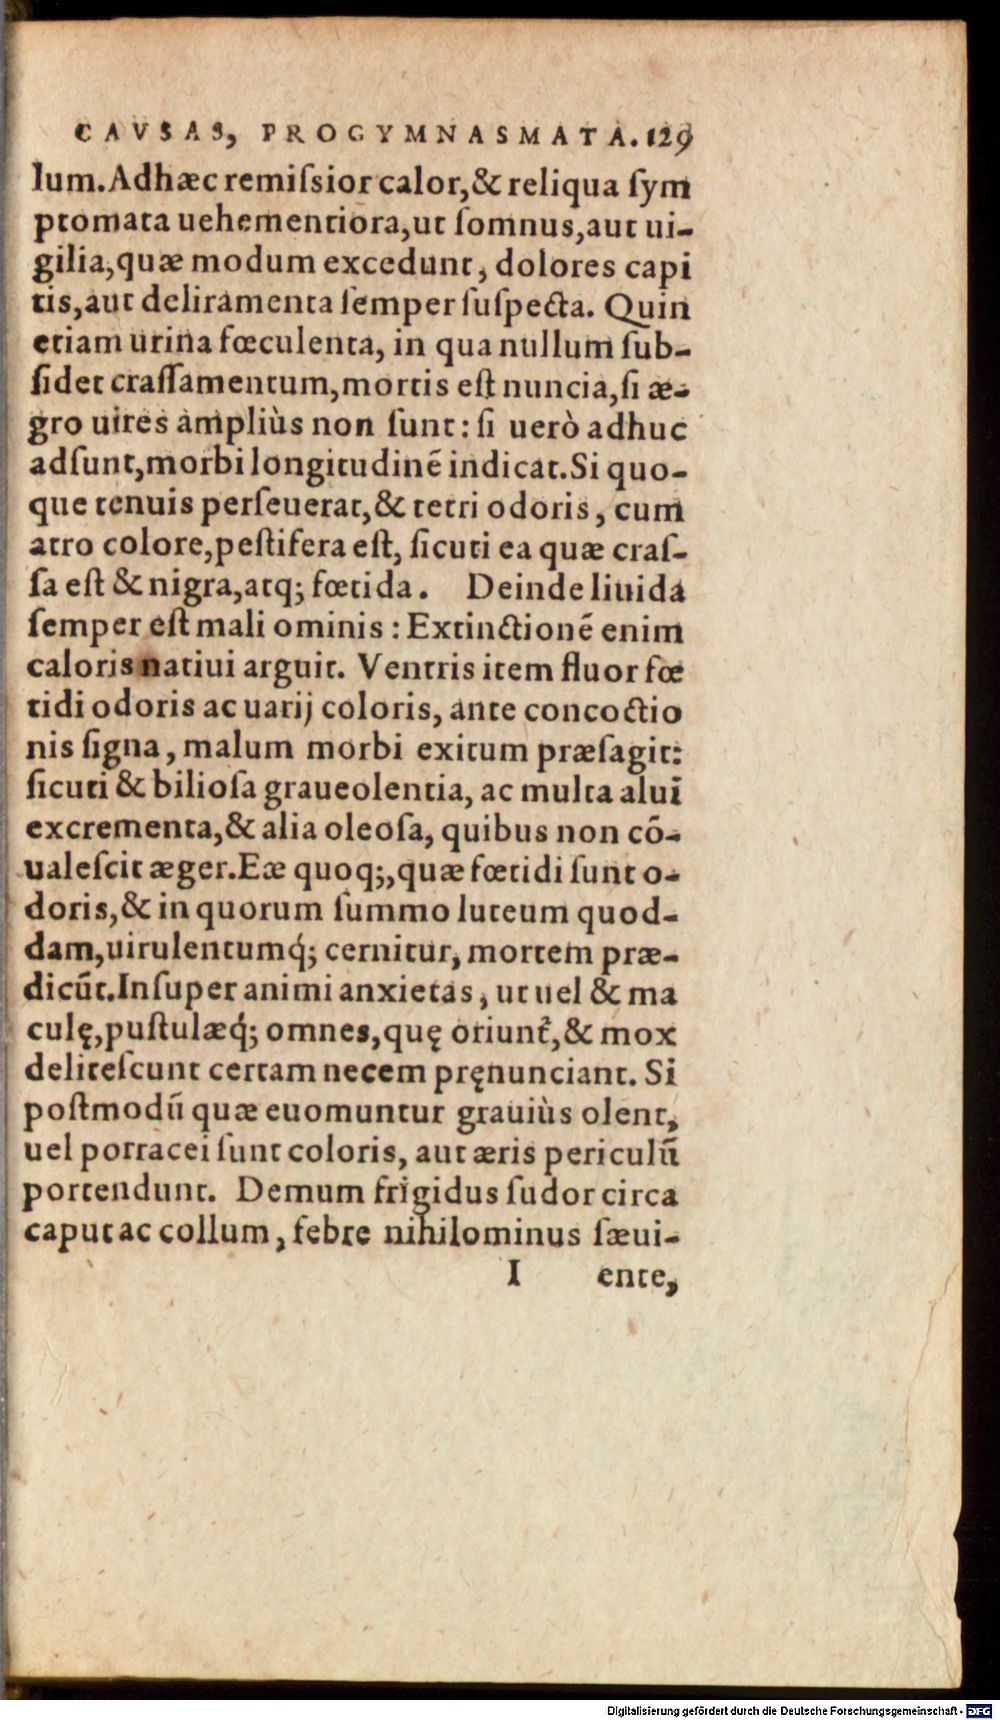 CAVSAS, PROGYMNASMATA. 129
lum. Adhæc remiſsior calor, & reliqua ſym
ptomata uehementiora, ut ſomnus, aut ui-
gilia, quæ modum excedunt, dolores capi
tis, aut deliramenta ſemper ſuſpecta. Quin
etiam urina fœculenta, in qua nullum ſub-
ſidet craſſamentum, mortis eſt nuncia, ſi æ-
gro uires ampliùs non ſunt: ſi uerò adhuc
adſunt, morbi longitudinē indicat. Si quo-
que tenuis perſeuerat, & tetri odoris, cum
atro colore, peſtifera eſt, ſicuti ea quæ craſ-
ſa eſt & nigra, atq; fœtida. Deinde liuida
ſemper eſt mali ominis: Extinctionē enim
caloris natiui arguit. Ventris item fluor fœ
tidi odoris ac uarij coloris, ante concoctio
nis ſigna, malum morbi exitum præſagit:
ſicuti & bilioſa graueolentia, ac multa alui
excrementa, & alia oleoſa, quibus non cō-
ualeſcit æger. Eæ quoq;, quæ fœtidi ſunt o-
doris, & in quorum ſummo luteum quod-
dam, uirulentumq́; cernitur, mortem præ-
dicūt. Inſuper animi anxietas, ut uel & ma
culę, puſtulæq́; omnes, quę oriunt᷑, & mox
deliteſcunt certam necem pręnunciant. Si
poſtmodū quæ euomuntur grauiùs olent,
uel porracei ſunt coloris, aut æris periculū
portendunt. Demum frigidus ſudor circa
caput ac collum, febre nihilominus ſæui-
I ente,
Digitalisierung gefördert durch die Deutsche Forschungsgemeinschaft - DFG